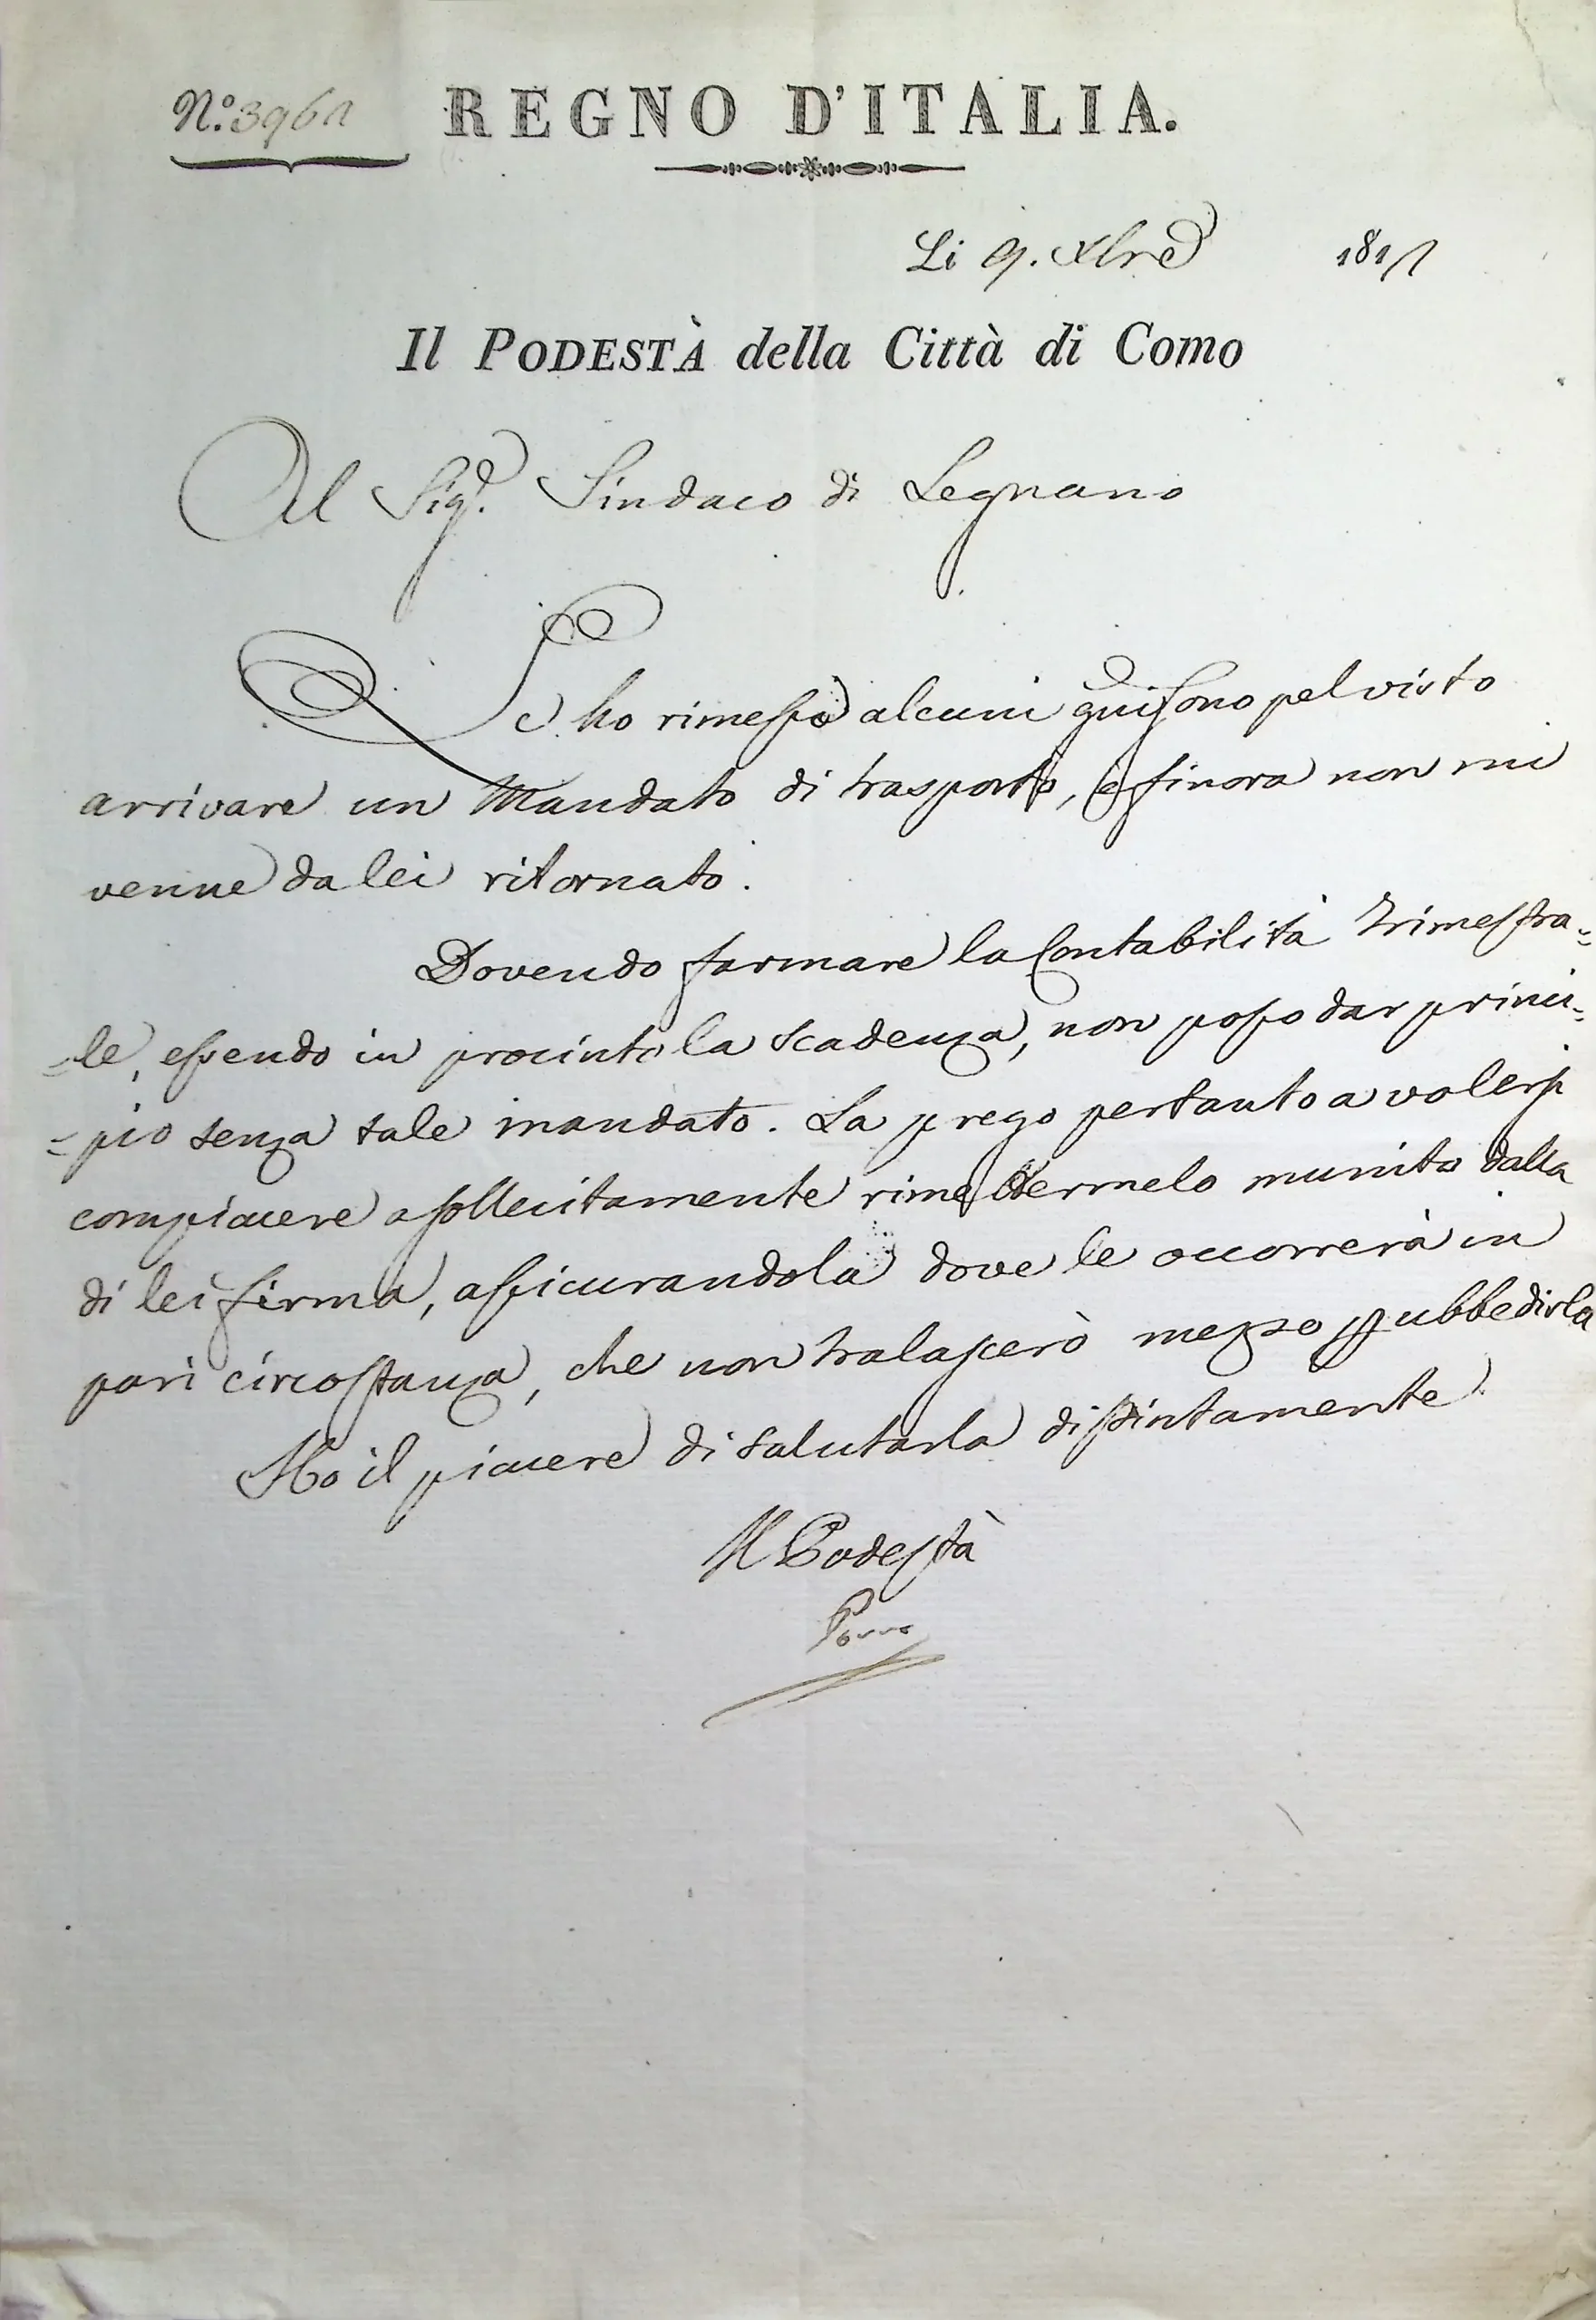 N.º 3961 REGNO D'ITALIA.
Li 9. Xbre 1811
Il PODESTÀ della Città di Como
Al Sigr. Sindaco di Legnano
Le ho rimesso alcuni giorni sono pel visto
arrivare un Mandato di trasporto, e finora non mi
venne da lei ritornato.
Dovendo formare la Contabilità Trimestra=
=le, essendo in procinto la scadenza, non posso dar princi=
=pio senza tale mandato. La prego pertanto a volersi
compiacere a sollecitamente rimettermelo munito dalla
di lei firma, assicurandola dove le occorrerà in
pari circostanza, che non tralascerò mezzo p ubbedirla
Ho il piacere di salutarla distintamente.
Il Podestà
Porro